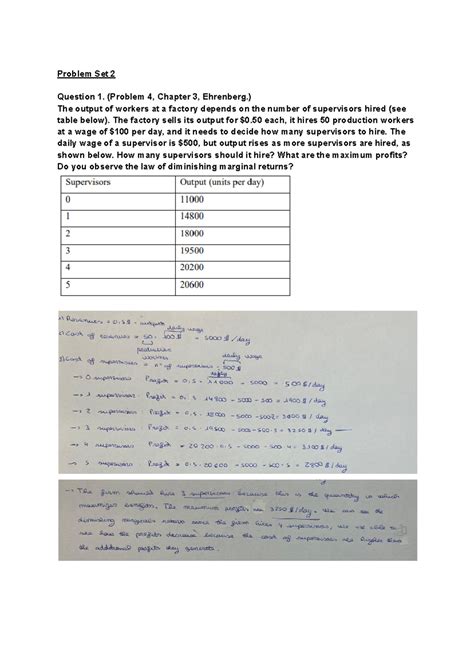 Problem Set 2
Question 1. (Problem 4, Chapter 3, Ehrenberg.)
The output of workers at a factory depends on the number of supervisors hired (see
table below). The factory sells its output for $0.50 each, it hires 50 production workers
at a wage of $100 per day, and it needs to decide how many supervisors to hire. The
daily wage of a supervisor is $500, but output rises as more supervisors are hired, as
shown below. How many supervisors should it hire? What are the maximum profits?
Do you observe the law of diminishing marginal returns?
Supervisors Output (units per day)
0 11000
1 14800
2 18000
3 19500
4 20200
5 20600
Revenues = 0.5$ · outputs
daily wage
Cost of = 50 · 100$ = 5000$/day
production
workers
daily wage
Cost of supervisors = nº of supervisors · 500$
→ 0 supervisors Profit = 0.5 · 11000 - 5000 = 500$/day
→ 1 supervisor Profit = 0.5 · 14800 - 5000 - 500 = 1900$/day
→ 2 supervisors Profit = 0.5 · 18000 - 5000 - 500·2 = 3000$/day
→ 3 supervisors Profit = 0.5 · 19500 - 5000 - 500·3 = 3250$/day
→ 4 supervisors Profit = 20200 · 0.5 - 5000 - 500·4 = 3100$/day
→ 5 supervisors Profit = 0.5 · 20600 - 5000 - 500·5 = 2800$/day
→ The firm should hire 3 supervisors because this is the quantity which
maximizes benefits. The maximum profits are 3250$/day. We can see the
diminishing marginal returns once the firm hires 4 supervisors, we are able to
see how the profits decrease because the cost of supervisors is higher than
the additional profits they generate.